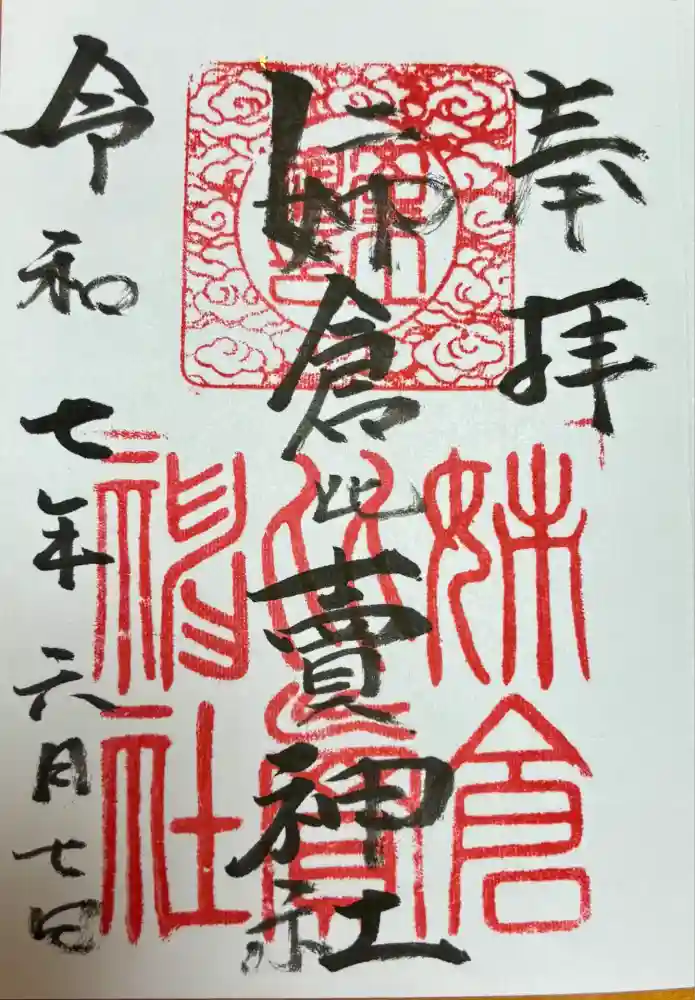 奉拝
姉倉比賣神社
令和七年六月七日
姉倉
比賣
神社